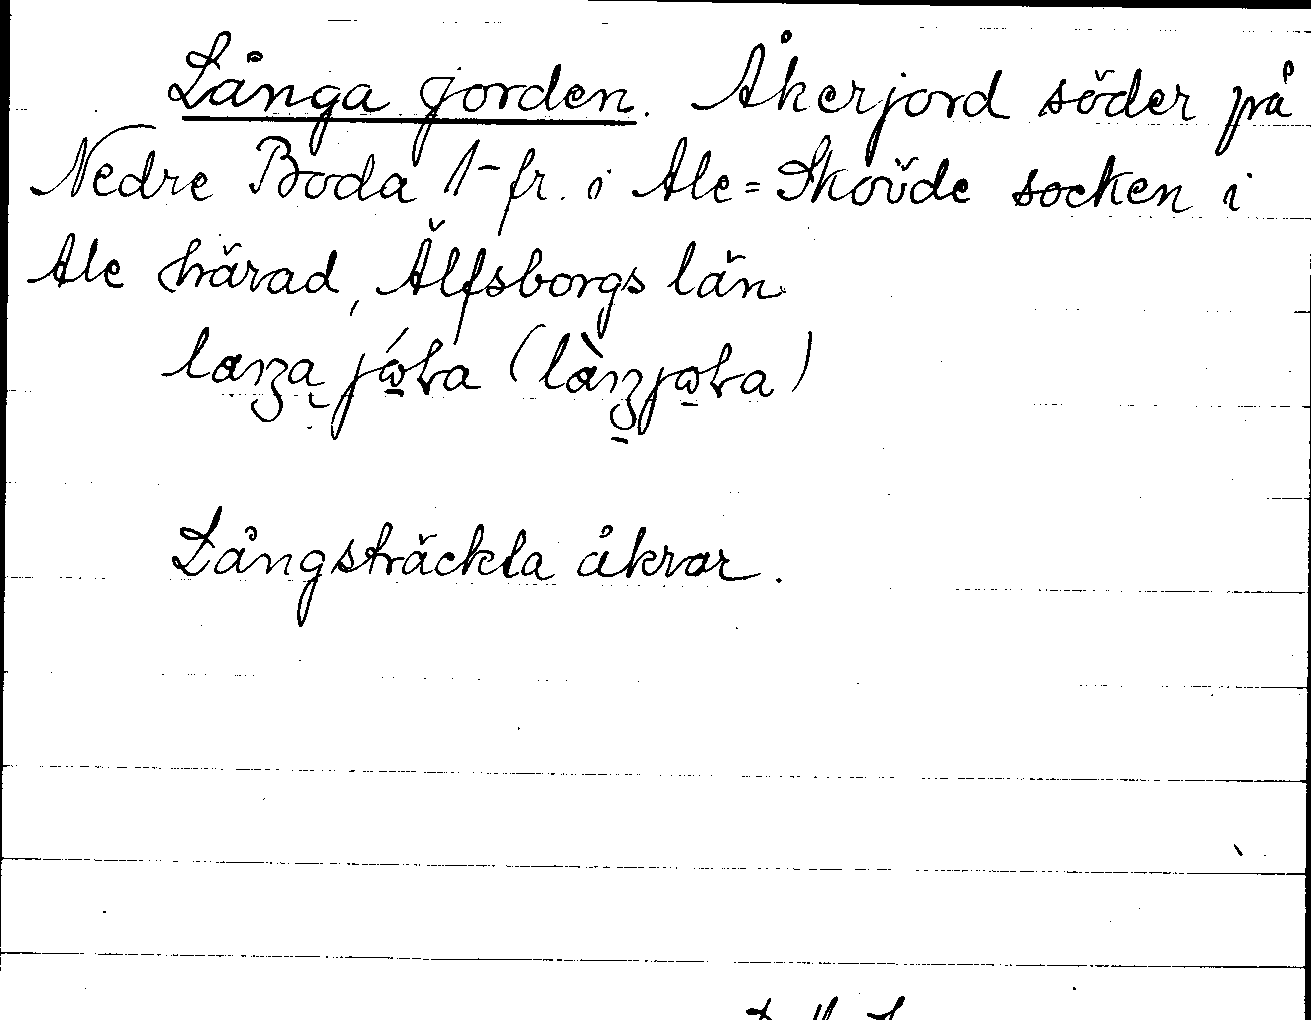 Långa jorden. Åkerjord söder på
Nedre Boda 1-fr. i Ale=Skövde socken i
Ale härad, Älfsborgs län
Långsträckta åkrar.